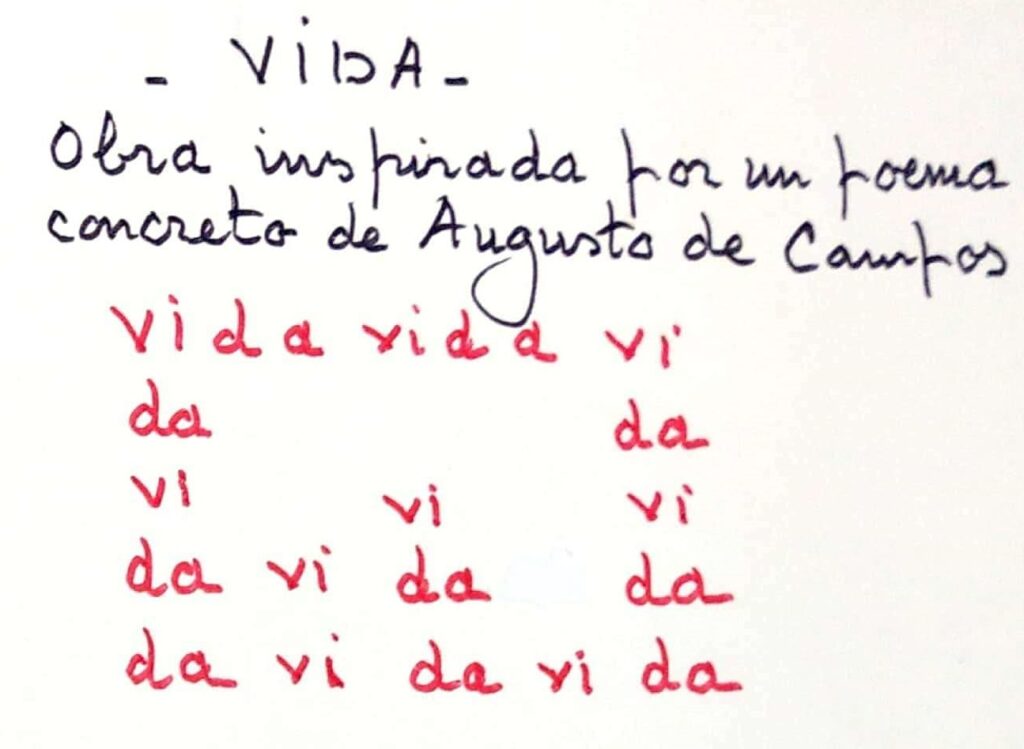 - ViDA -
Obra inspirada por un poema
concreto de Augusto de Campos
vida vida vi
da da
vi vi vi
da vi da da
da vi da vi da